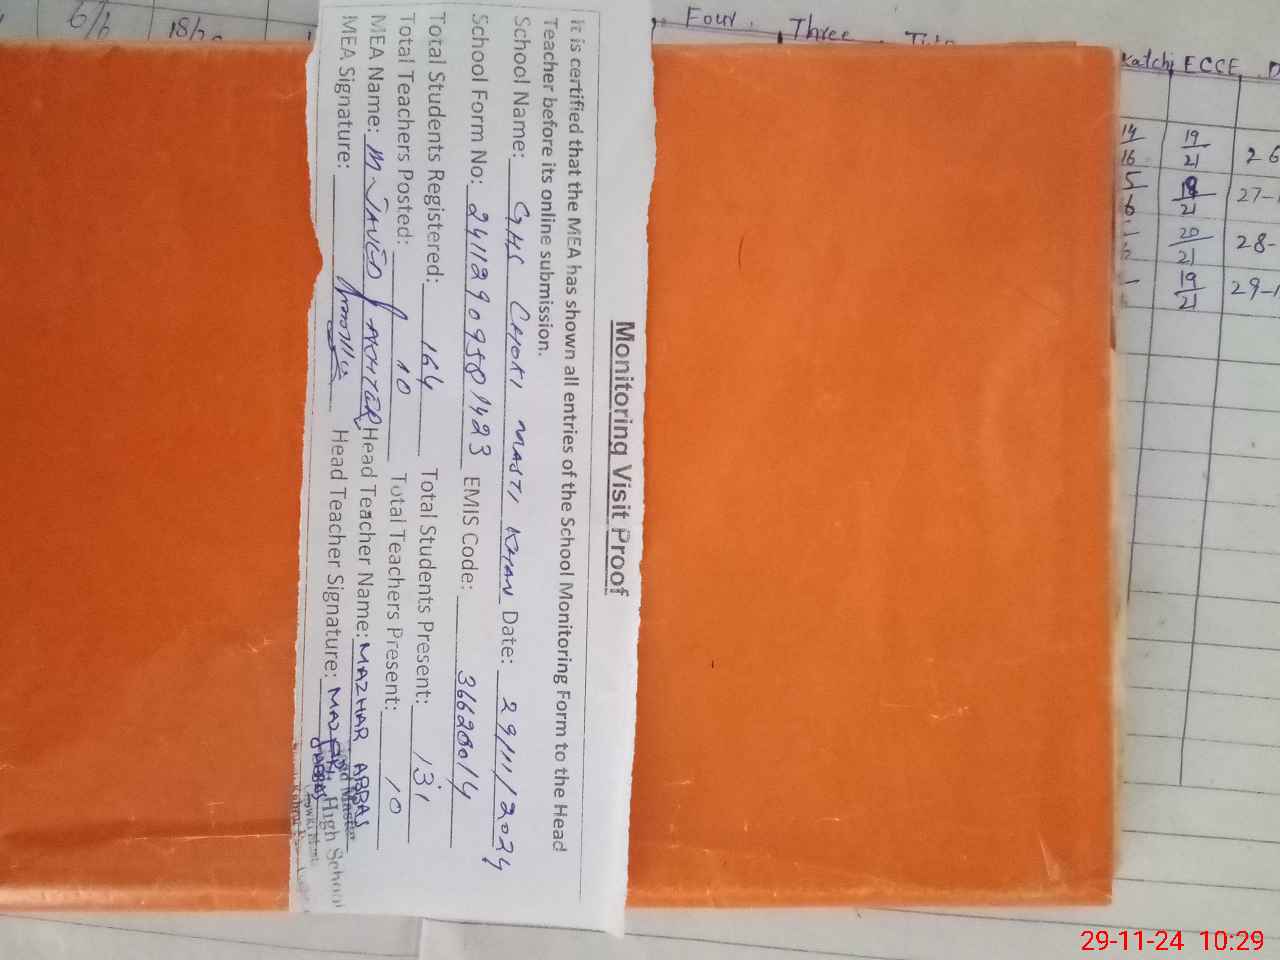 Monitoring Visit Proof
It is certified that the MEA has shown all entries of the School Monitoring Form to the Head
Teacher before its online submission.
School Name: GHS CHOKI MASTI KHAN Date: 29/11/2024
School Form No: 24112909581423 EMIS Code: 36620014
Total Students Registered: 164 Total Students Present: 131
Total Teachers Posted: 10 Total Teachers Present: 10
MEA Name: M. JAVED AKHTAR Head Teacher Name: MAZHAR ABBAS
MEA Signature: Head Teacher Signature: MAZHAR ABBAS
High School
6/6 18/20
Four Three
Katchi ECCE
14/16 19/21 26
27-
20/21 28-
19/21 29-1
29-11-24 10:29